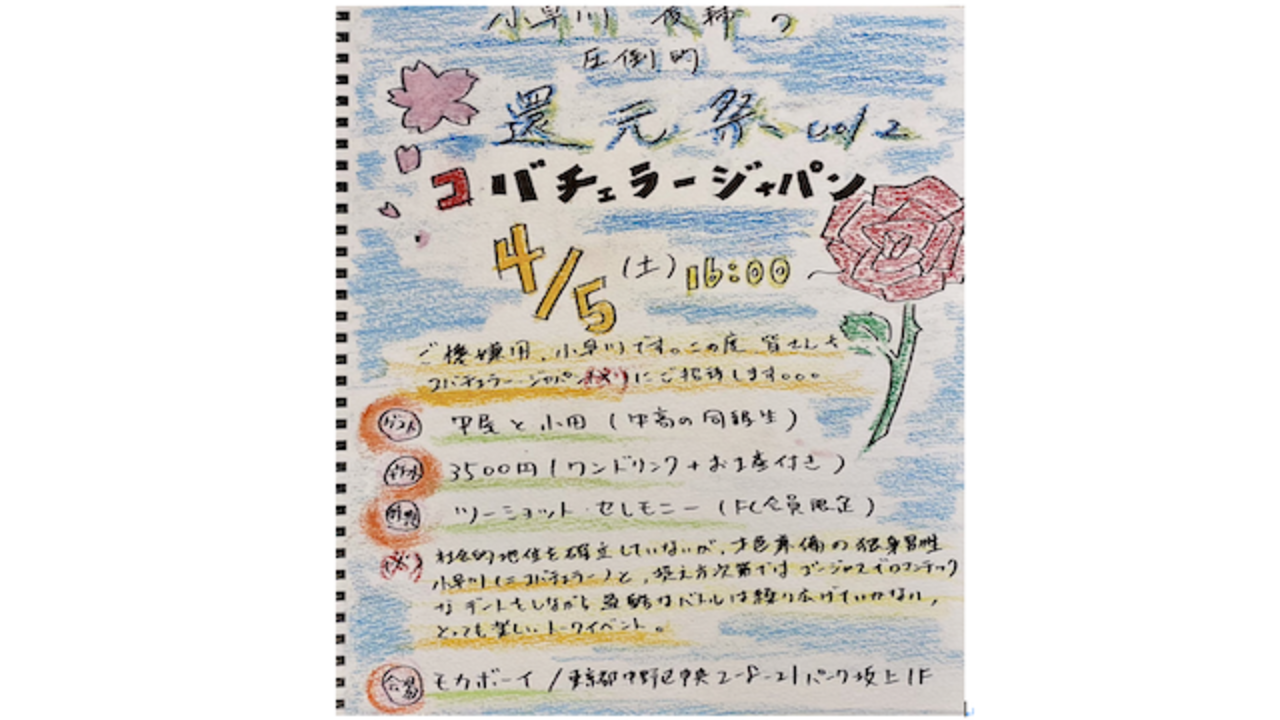 小早川 俊輔の
圧倒的
還元祭 vol 2
コバチェラージャパン
4/5 (土) 16:00
ご機嫌用、小早川です。この度 皆さんを
コバチェラージャパン(※)にご招待します。。。
ゲスト 平屋と小田 (中高の同級生)
チケット 3500円 (ワンドリンク+お土産付き)
特典 ツーショット・セレモニー (FC会員限定)
(※) 社会的地位を確立していないが、才色兼備の独身男性
小早川(=コバチェラー)と、捉え方次第ではゴージャスでロマンチック
なデートをしながら過酷なバトルは繰り広げていかない、
とっても楽しいトークイベント。
会場 モカボーイ / 東京都中野区中央2-8-21 パーク坂上1F